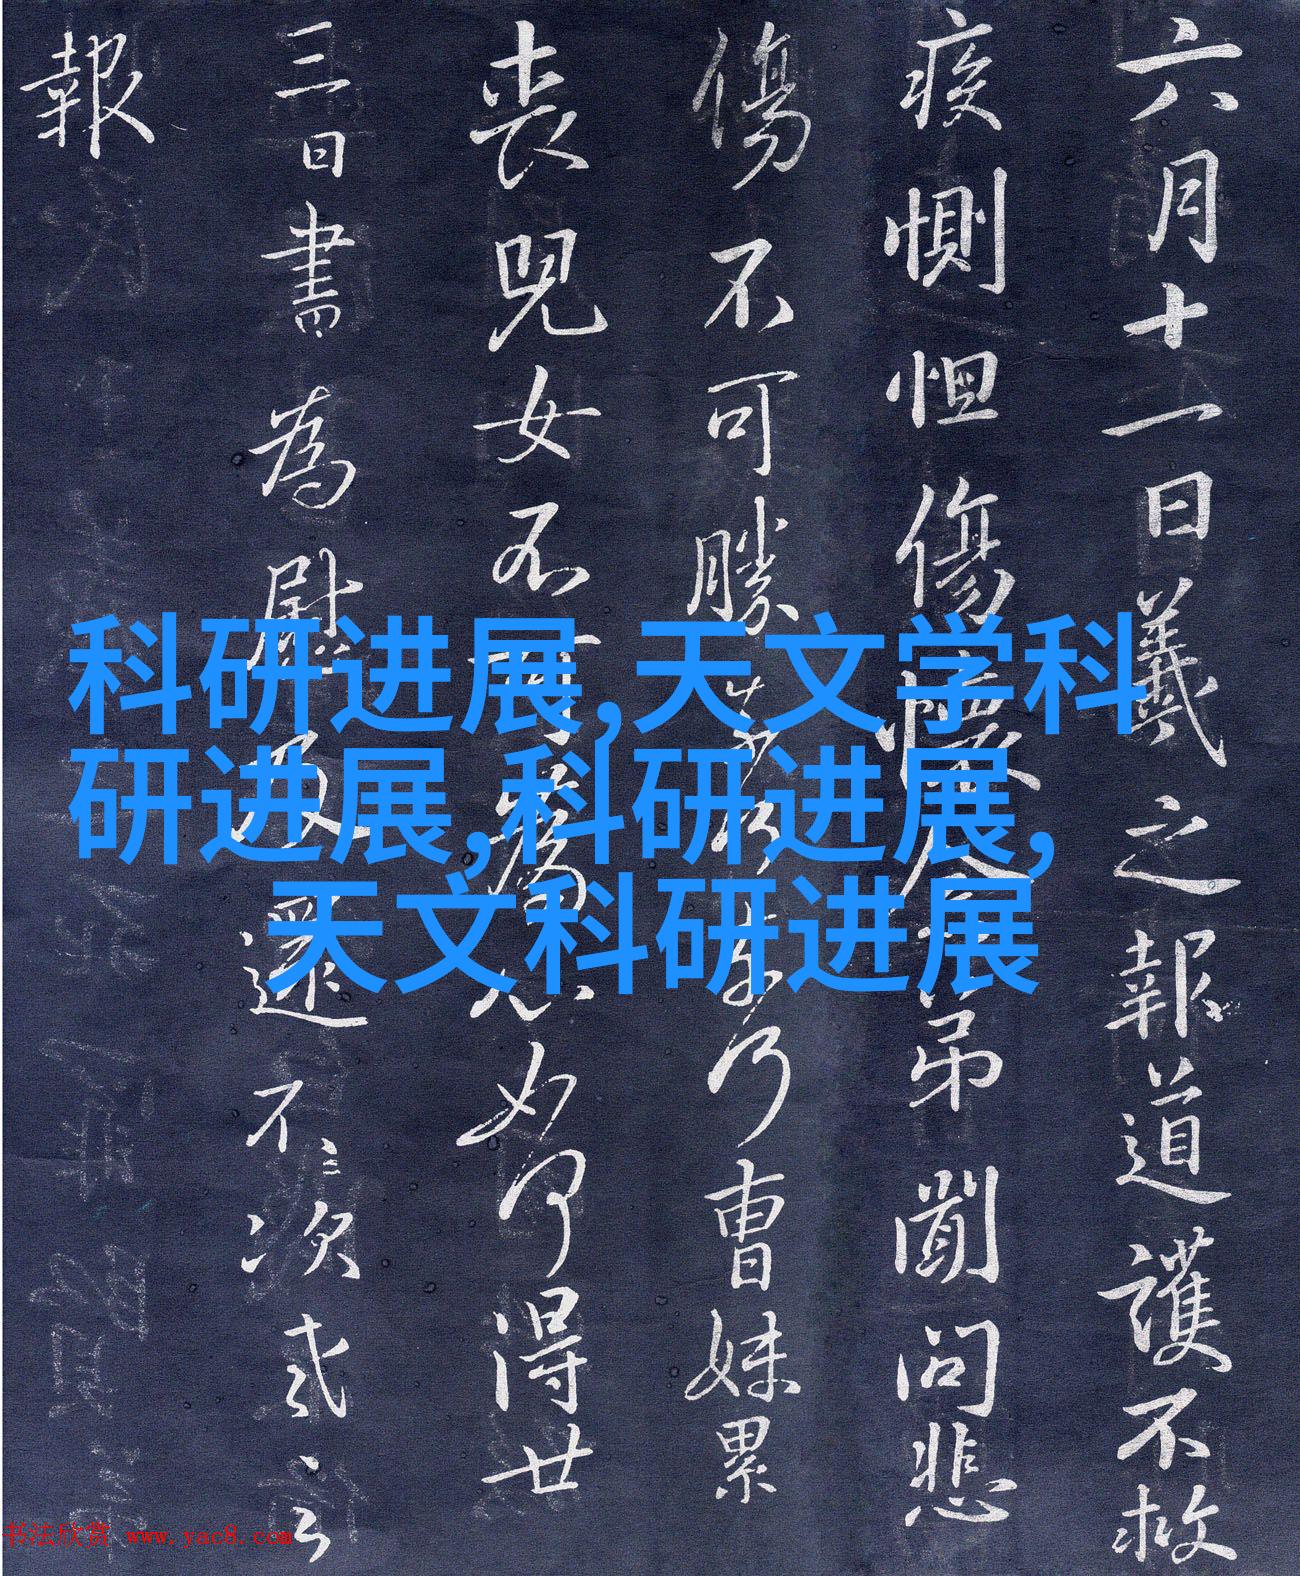 六月十一日羲之報道護不救
疾惻怛傷懷念弟聞問悲
傷不可勝乃曹妹累
喪兒女不可為心如何得廿
三日書為慰及不次
報
科研进展,天文学科
研进展,科研进展,
天文科研进展
书法欣赏 www.yac8.com